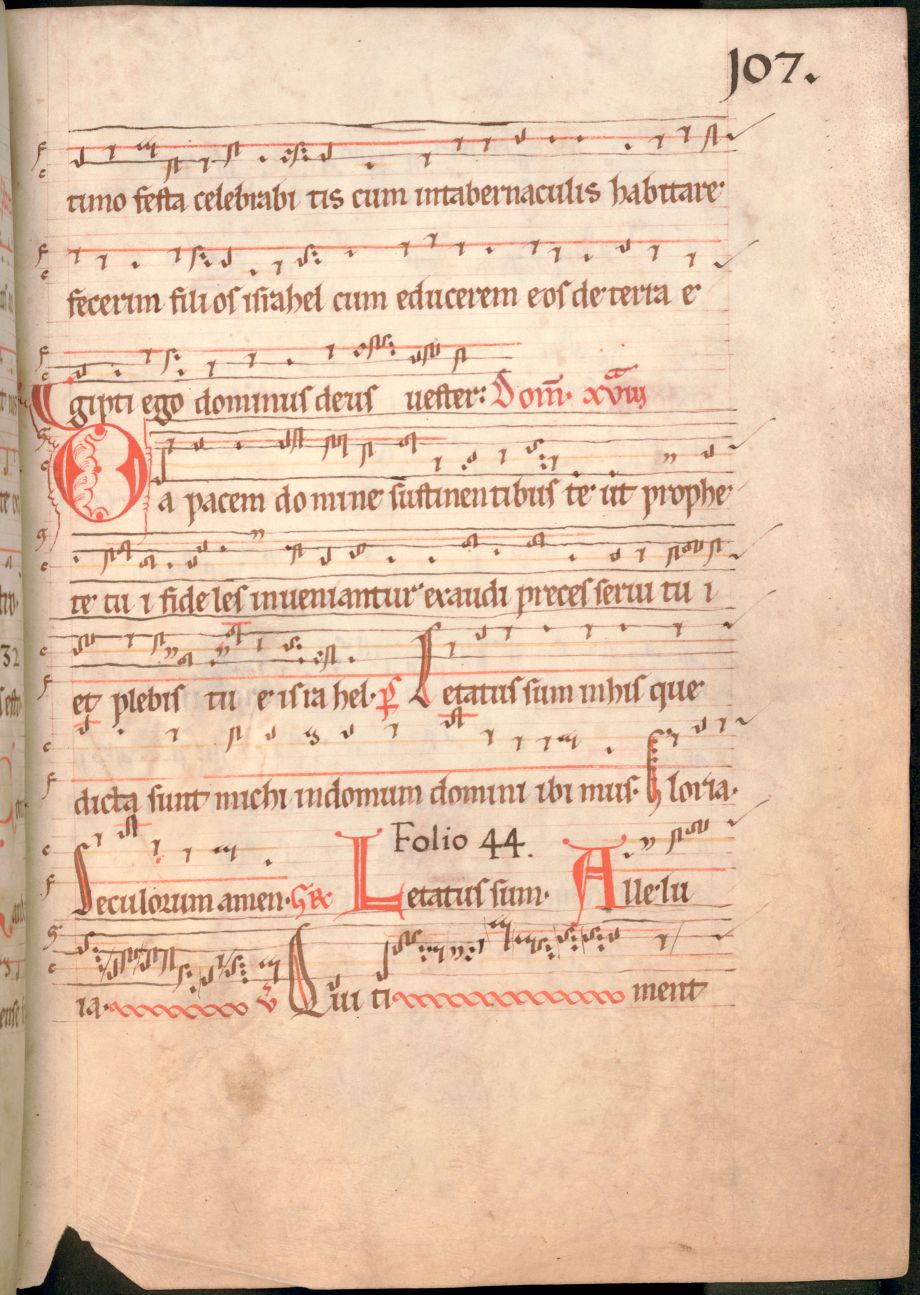 107.
timo festa celebrabi tis cum intabernaculis habitare
fecerim fili os israhel cum educerem eos de terra e
gipti ego dominus deus uester: Dom̄. xviii
Da pacem do mine sustinentibus te ut prophe
te tu i fide les inueniantur exaudi preces serui tu i
et plebis tu e isra hel. ps Letatus sum inhis que
dicta sunt michi indomum domini ibi mus. Gloria.
Seculorum amen. GR Letatus sum. Alle lu
Folio 44.
ia. v̄ Qui ti ment